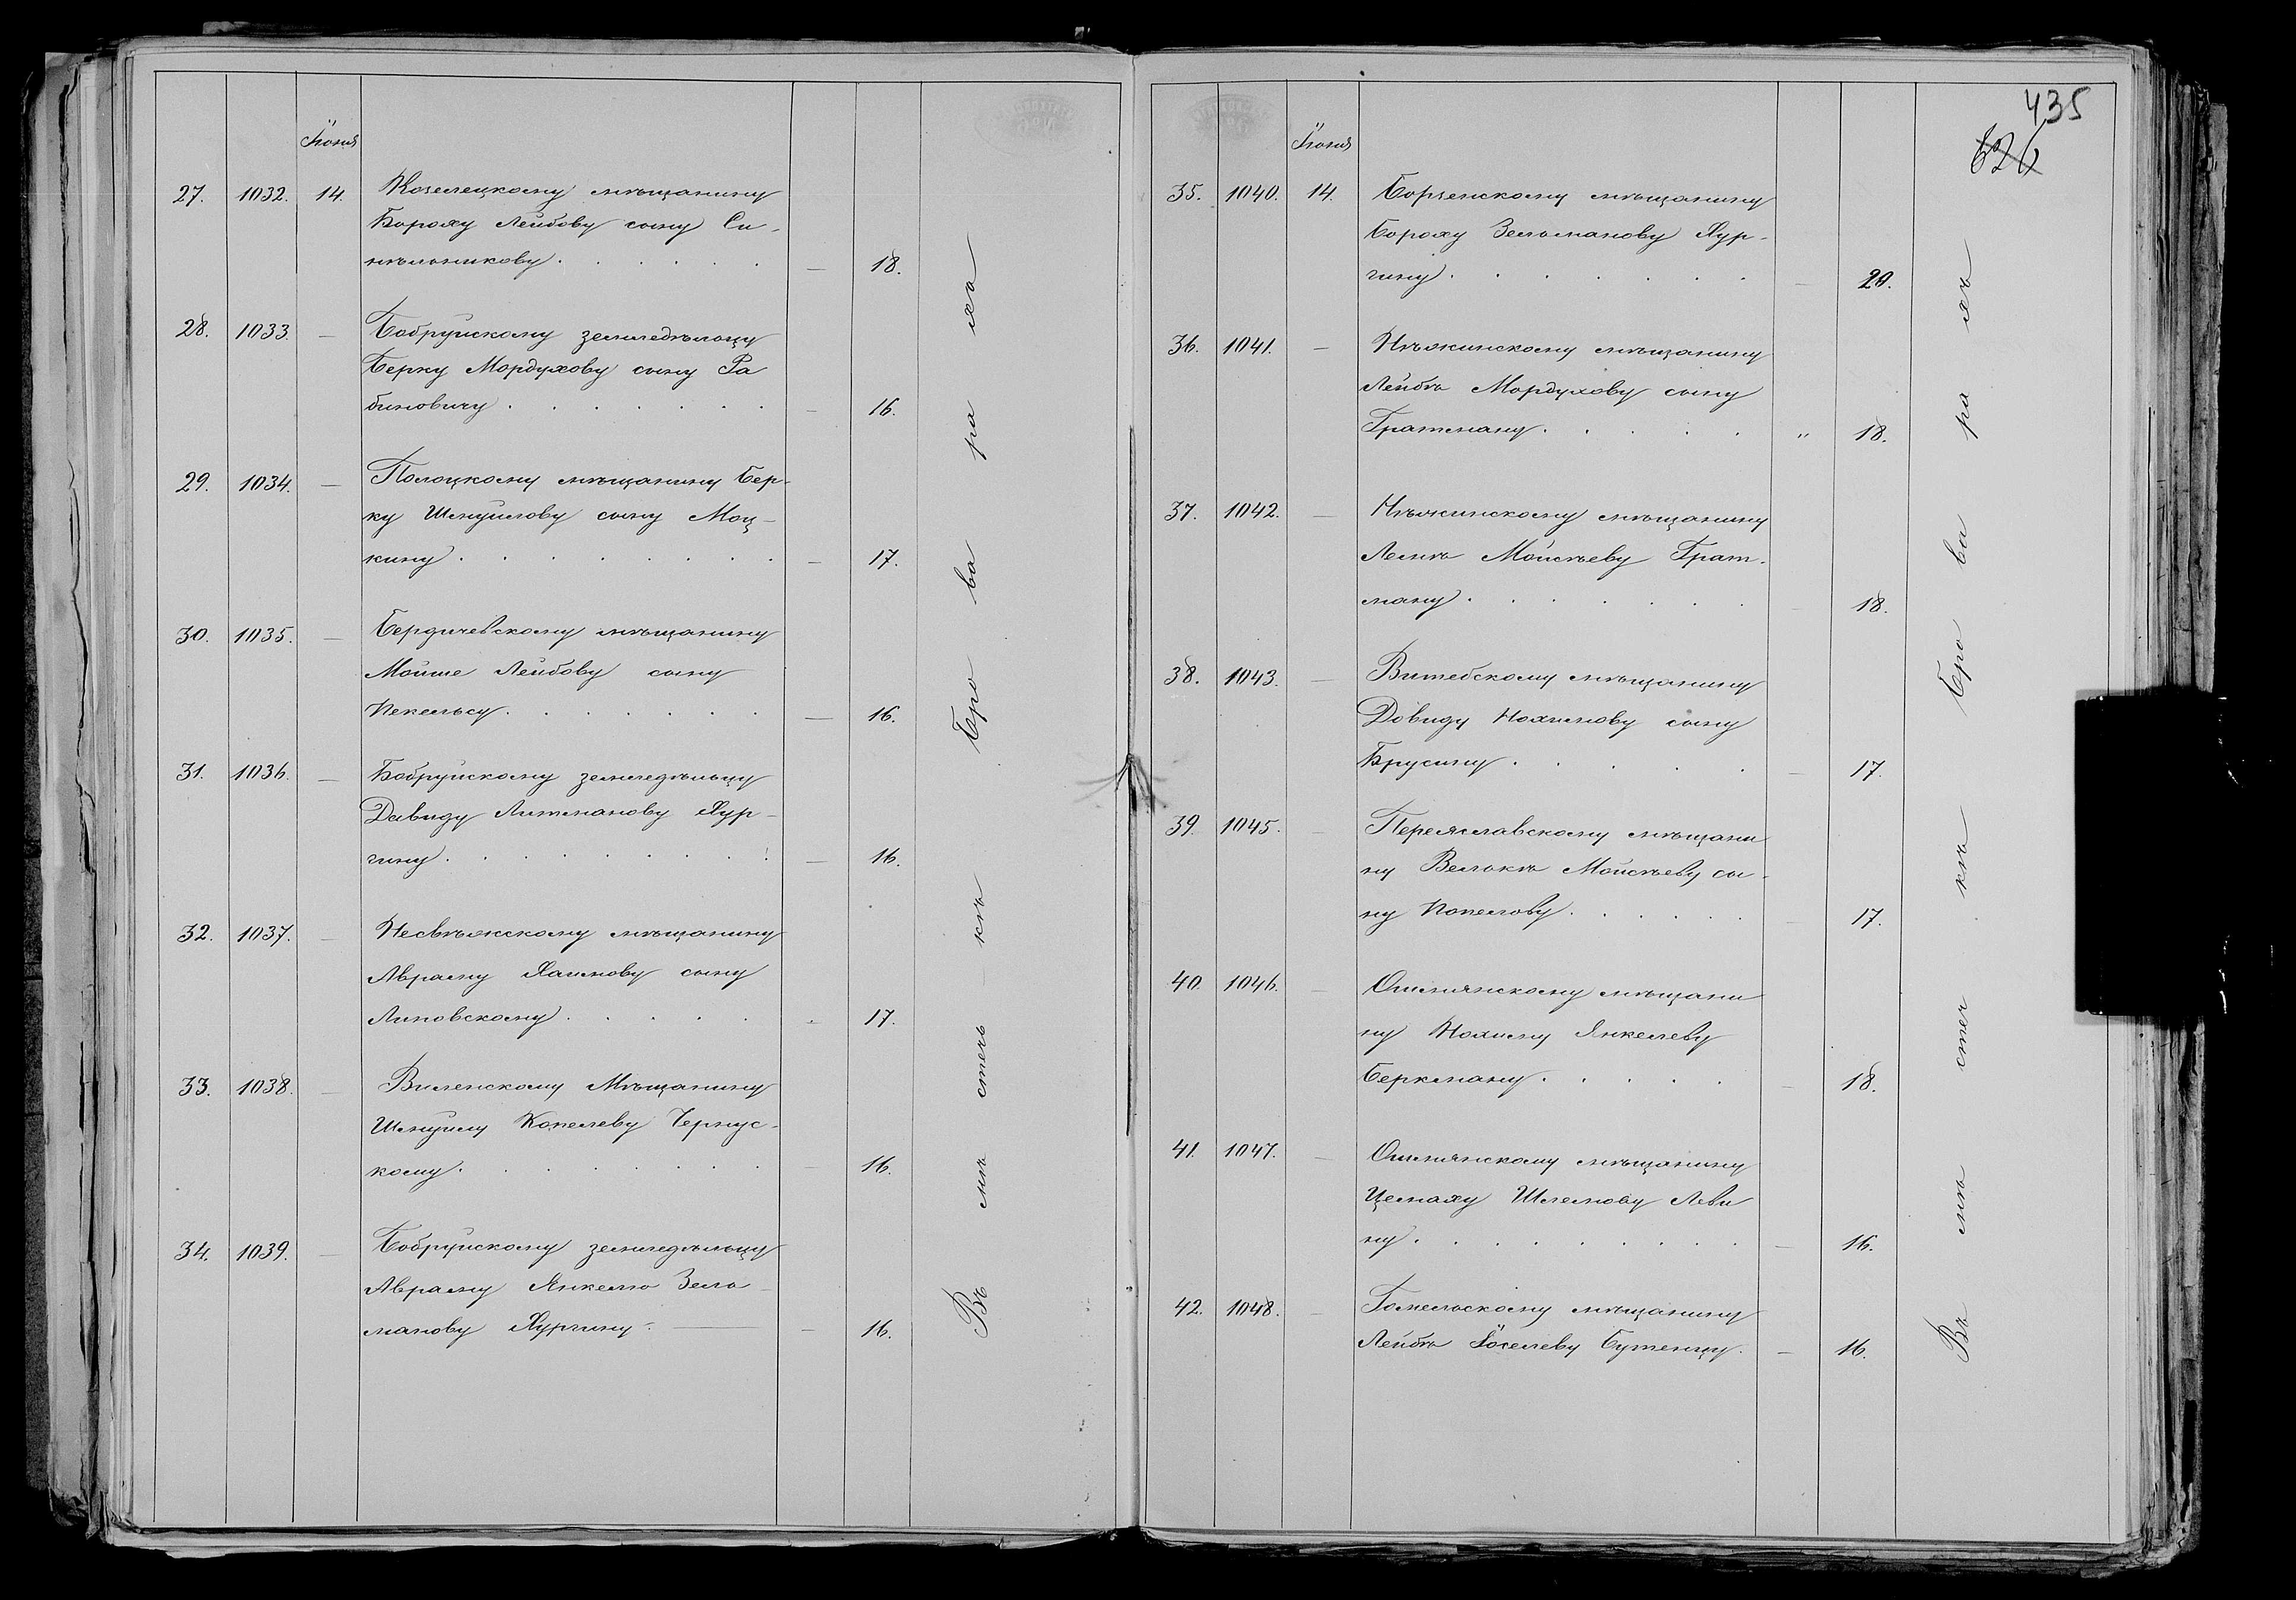 Іюня
27. 1032. 14. Козелецкому мѣщанину
Бороху Лейбову сыну Си-
нѣльникову . . . . . . — 18.
28. 1033. — Бобруйскому земледѣльцу
Берку Мордухову сыну Ра
биновичу . . . . . . . — 16.
29. 1034. — Полоцкому мѣщанину Бер-
ку Шмуилову сыну Моц-
кину . . . . . . . . — 17.
30. 1035. — Бердичевскому мѣщанину
Мойше Лейбову сыну
Пекельсу . . . . . . . — 16.
31. 1036. — Бобруйскому земледѣльцу
Давиду Литманову Хур-
гину . . . . . . . . . — 16.
32. 1037. — Несвѣжскому мѣщанину
Авраму Хаимову сыну
Липовскому . . . . . 17.
33. 1038. — Виленскому Мѣщанину
Шмуилу Копелеву Чернус-
кому . . . . . . . 16.
34. 1039. — Бобруйскому земледѣльцу
Авраму Янкелю Зель-
манову Хургину. — — 16.
Въ мѣ стеч кѣ Бро ва ра хъ
435
626
Іюня
35. 1040. 14. Борзенскому мѣщанину
Бороху Зельманову Хур-
гину . . . . . . . — 20.
36. 1041. — Нѣжинскому мѣщанину
Лейбѣ Мордухову сыну
Гратману . . . . . „ 18.
37. 1042. — Нѣжинскому мѣщанину
Лемѣ Мойсѣеву Грат-
ману . . . . . . . — 18.
38. 1043. — Витебскому мѣщанину
Довиду Нохимову сыну
Брусину . . . . . — 17.
39. 1045. — Переяславскому мѣщани
ну Велькѣ Мойсѣеву сы-
ну Копелову . . . . . — 17.
40. 1046. — Ошмянскому мѣщани
ну Нохиму Янкелеву
Беркману . . . . . — 18.
41. 1047. — Ошмянскому мѣщанину
Цемаху Шлемову Леви
ну . . . . . . . . — 16.
42. 1048. — Гомельскому мѣщанину
Лейбѣ Іоселеву Бутенцу. — 16.
Въ мѣ стеч кѣ Бро ва ра хъ